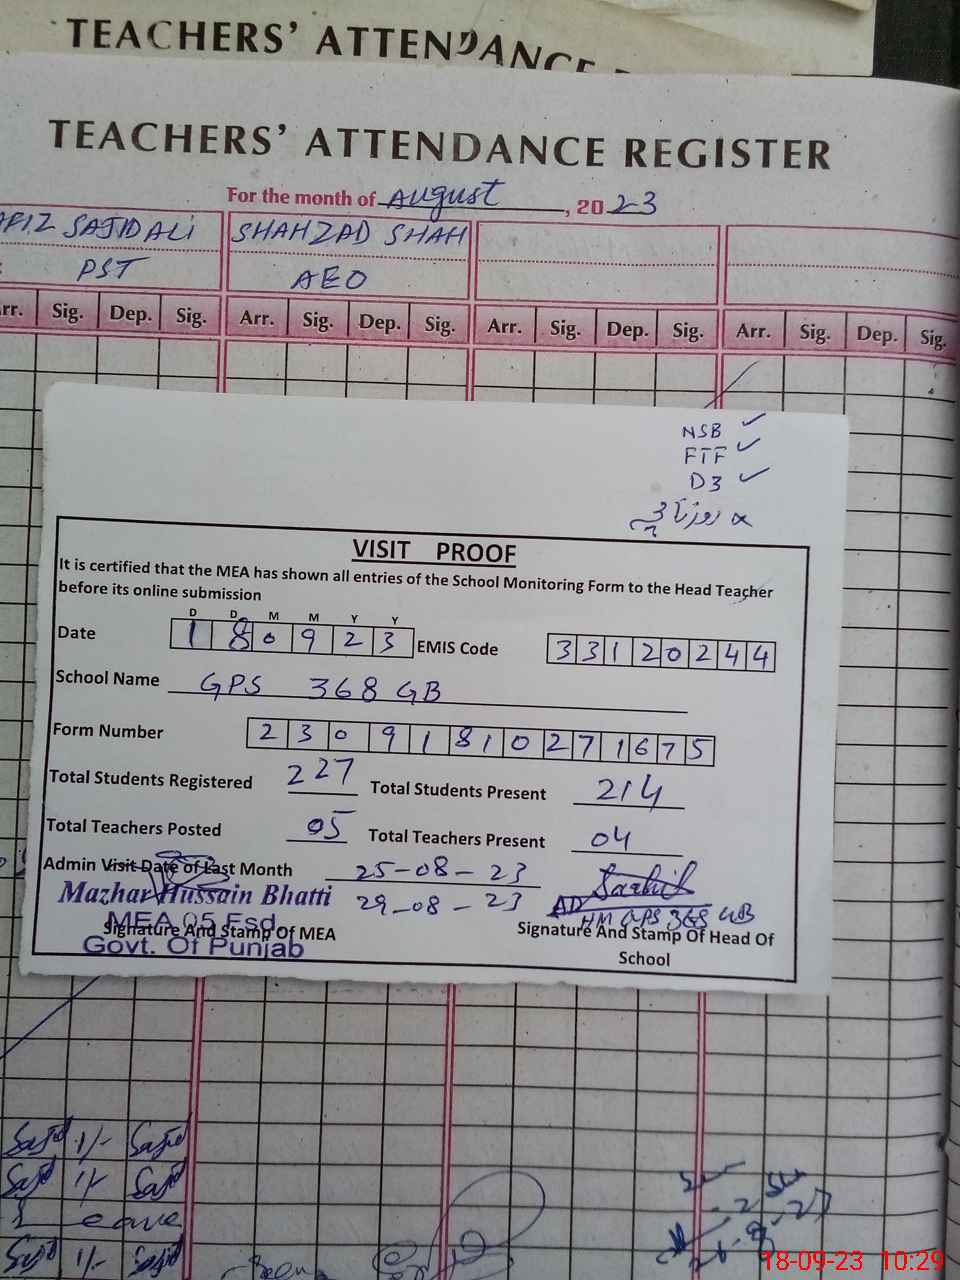 TEACHERS' ATTENDANCE
TEACHERS' ATTENDANCE REGISTER
For the month of August, 2023
AFIZ SAJID ALI SHAHZAD SHAH
PST AEO
Arr. Sig. Dep. Sig. Arr. Sig. Dep. Sig. Arr. Sig. Dep. Sig. Arr. Sig. Dep. Sig.
NSB ✓
FTF ✓
D3 ✓
VISIT PROOF
It is certified that the MEA has shown all entries of the School Monitoring Form to the Head Teacher
before its online submission
D D M M Y Y
Date 180923 EMIS Code 33120244
School Name GPS 368 GB
Form Number 23091810271675
Total Students Registered 227 Total Students Present 214
Total Teachers Posted 05 Total Teachers Present 04
Admin Visit Date of Last Month 25-08-23
Mazhar Hussain Bhatti 29-08-23
MEA 05 Fsd HM GPS 368 GB
Signature And Stamp Of MEA Signature And Stamp Of Head Of
Govt. Of Punjab School
Sajid 1/- Sajid
Sajid 1/- Sajid
Leave
Sajid 1/- Sajid
18-09-23 10:29